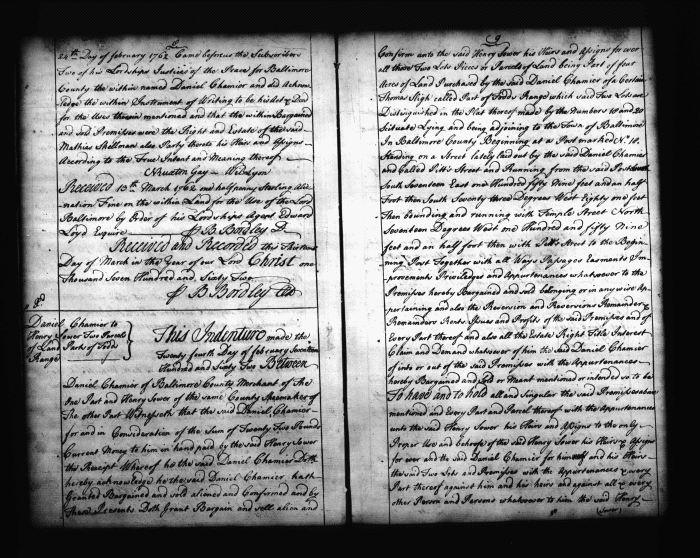 8
24th Day of february 1762 Came before us the Subscribers
Two of his Lordships Justices of the Peace for Baltimore
County the within named Daniel Chamier and did acknow
ledge the within Instrument of Writing to be his Act & Deed
for the Uses therein mentioned and that the within Bargained
and sold Premises were the Right and Estate of the said
Mathias Shellman also Party thereto his Heirs and Assigns
According to the True Intent and Meaning thereof
Nuxton Gay Wm Lyon
Received 13th March 1762 one halfpenny Sterling Alie
nation Fine on the within Land for the Use of the Lord
Baltimore by Order of his Lordships Agent Edward
Loyd Esquire P B. Bordley D.
Received and Recorded this Thirteen
Day of March in the Year of our Lord Christ one
Thousand Seven Hundred and Sixty Two
P B Bordley Cld
Daniel Chamier to
Henry Sower Two Parcels
of Land Part of Todds
Range
This Indenture made the
Twenty fourth Day of february Seventeen
Hundred and Sixty Two Between
Daniel Chamier of Baltimore County Merchant of The
One Part and Henry Sower of the same County Shoemaker of
The other Part Witnesseth that the said Daniel Chamier
for and in Consideration of the Sum of Twenty Two Pounds
Current Money to him in hand paid by the said Henry Sower
the Receipt Whereof he the said Daniel Chamier Doth
hereby acknowledge he the said Daniel Chamier hath
Granted Bargained and sold aliened and Confirmed and by
These Presents Doth Grant Bargain and sell alien and
9
Confirm unto the said Henry Sower his Heirs and Assigns for ever
all those Two Lots Pieces or Parcels of Land being Part of four
Acres of Land Purchased by the said Daniel Chamier of a Certain
Thomas Sligh called Part of Todds Range which said Two Lots are
Distinguished in the Plat thereof made by the Numbers 10 and 20
Situate Lying and being adjoining to the Town of Baltimore
In Baltimore County Beginning at a Post marked No. 10.
Standing on a Street lately laid out by the said Daniel Chamier
and Called Pitt's Street and Running from the said Post South
South Seventeen East one Hundred fifty Nine feet and an half
Foot then South Seventy three Degrees West Eighty one feet
Then Bounding and running with Temple Street North
Seventeen Degrees West one Hundred and fifty Nine
feet and an half foot then with Pitts Street to the Begin
ning Post Together with all Ways Passages Easments Im
provements Priviledges and Appurtenances whatsoever to the
Premises hereby Bargained and sold belonging or in any wise Ap
pertaining and also the Reversion and Reversions Remainder &
Remainders Rents Issues and Profits of the said Premises and of
Every Part thereof and also all the Estate Right Title Interest
Claim and Demand whatsoever of him the said Daniel Chamier
of into or out of the said Premises with the Appurtenances
hereby Bargained and Sold or Meant mentioned or intended so to be
To have and to hold all and Singular the said Premises above
mentioned and Every Part and Parcel thereof with the Appurtenances
unto the said Henry Sower his Heirs and Assigns to the only
Proper Use and Behoofe of the said Henry Sower his Heirs & Assigns
for ever and the said Daniel Chamier for himself and his Heirs
the said Two Lots and Premises with the Appurtenances & every
Part thereof against him and his heirs and against all & every
other Person and Persons whatsoever to him the said Henry
(Sower)